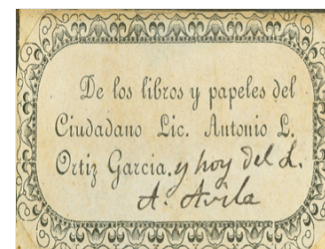 De los libros y papeles del
Ciudadano Lic. Antonio L.
Ortiz Garcia. y hoy del L.
A. Avila